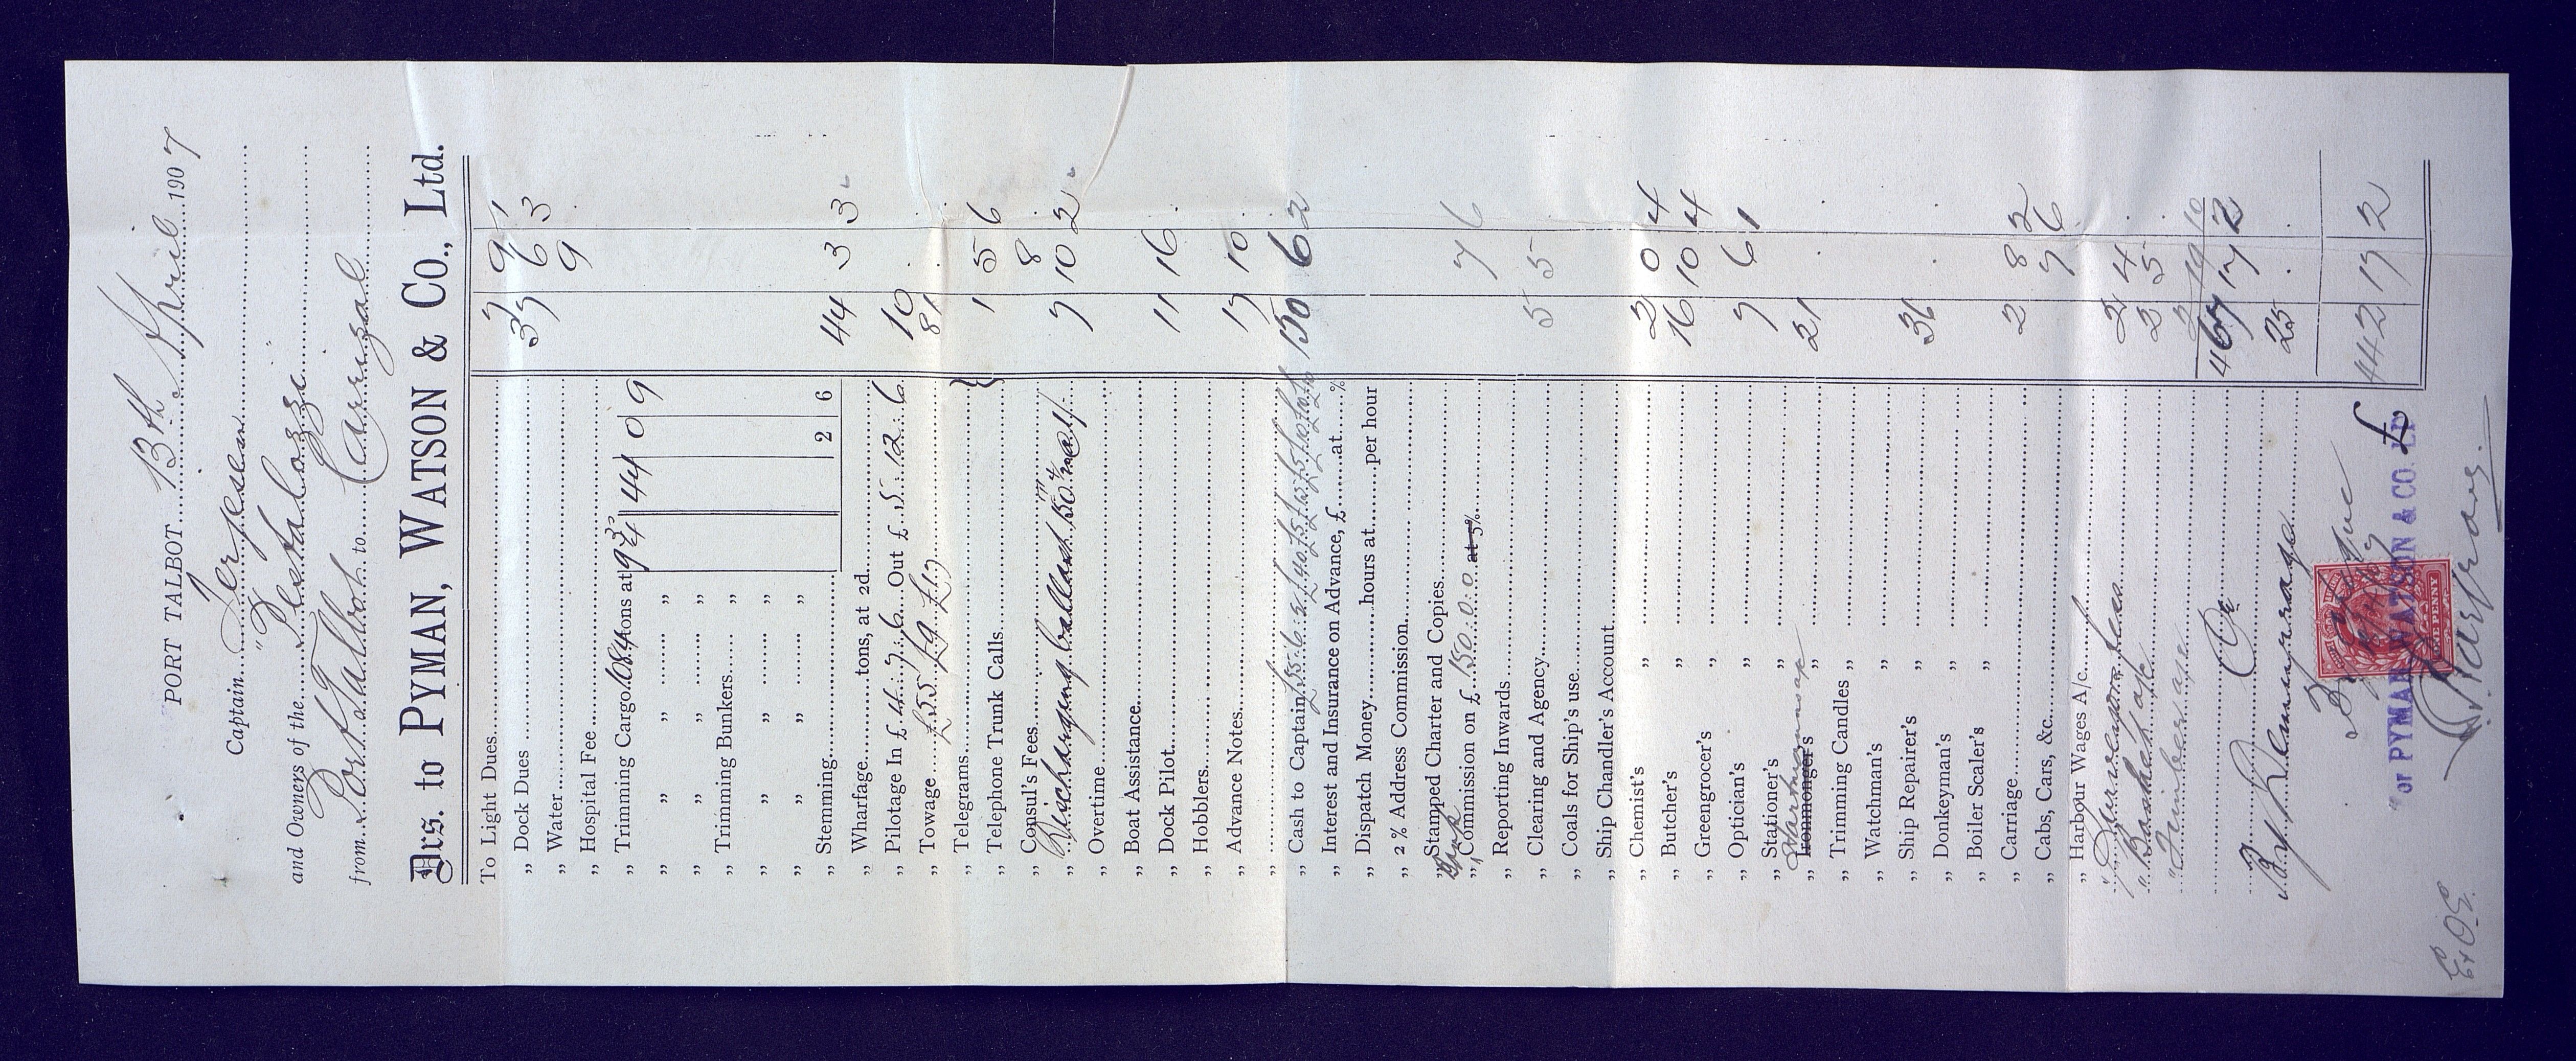 PORT TALBOT 13th April 1907
Captain
and Owners of the "Pestalozzi"
from Port Talbot to Carrizal
Drs. to PYMAN, WATSON & CO., Ltd.
To Light Dues 7 9 1
„ Dock Dues 37 6 3
„ Water 9
„ Hospital Fee
„ Trimming Cargo tons at 44 0 9
„ „ „ „
„ „ „ „
„ Trimming Bunkers „
„ „ „ „
„ „ „ „
„ Stemming 2 6 44 3 3
„ Wharfage tons, at 2d
„ Pilotage In £ 4. 7. 6 Out £ 5. 12. 6 10
„ Towage £55 £9 £17 81
„ Telegrams }
„ Telephone Trunk Calls } 1 5 6
„ Consul's Fees 8
„ Discharging ballast 150 tns @ 1/- 7 10 2
„ Overtime
„ Boat Assistance
„ Dock Pilot 11 16
„ Hobblers
„ Advance Notes 17 10
„
„ Cash to Captain 150 6 2
„ Interest and Insurance on Advance, £ at %
„ Dispatch Money hours at per hour
„ 2 % Address Commission
„ Stamped Charter and Copies
„ Bank Commission on £ 150. 0. 0 at 5% 7 6
„ Reporting Inwards
„ Clearing and Agency 5 5
„ Coals for Ship's use
„ Ship Chandler's Account
„ Chemist's „ 2 0 4
„ Butcher's „ 16 10 4
„ Greengrocer's „ 7 6 1
„ Optician's „
„ Stationer's „ 21
„ Ironmonger's „
„ Trimming Candles „
„ Watchman's „
„ Ship Repairer's „ 36
„ Donkeyman's „
„ Boiler Scaler's „
„ Carriage 2 8 2
„ Cabs, Cars, &c. 7 6
„ Harbour Wages A/c.
„ Surveyors fees 2 4
„ Basket a/c 2 5
„ Timber a/c 2 19 10
467 17 2
Cr
By 25
£ 442 17 2
By cheque
For PYMAN WATSON & CO. LD
ONE PENNY
E. & O. E.